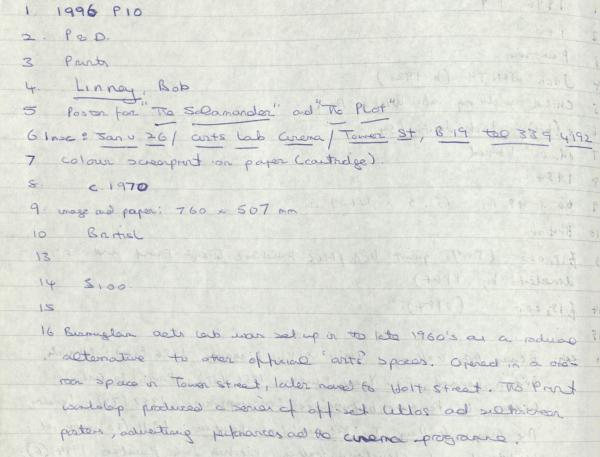 1 1996 P10
2. P & D.
3 Prints
4. Linney, Bob
5 Poster for "The Salamander" and "The Plot"
6 Insc: Jan v 26/ arts Lab cinema/ Tower St, B19 tel 339 4192
7 colour screenprint on paper (cartridge).
8. c. 1970
9 image and paper: 760 x 507 mm
10 British
13
14 £100
15
16 Birmingham arts Lab was set up in the late 1960's as a radical
alternative to other official 'arts' spaces. Opened in a
room space in Tower Street, later moved to Holt Street. The Print
workshop produced a series of offset lithos and silkscreen
posters, advertising performances and the cinema programme.